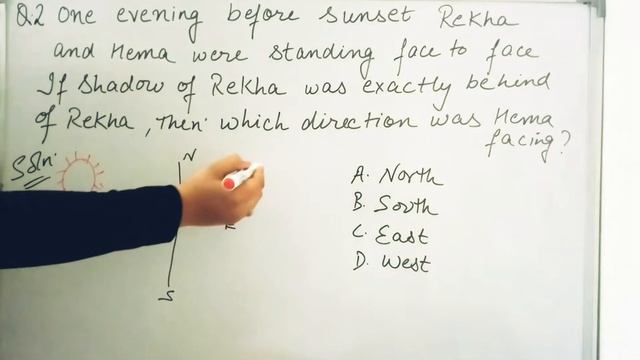 Q.2 One evening before sunset Rekha
and Hema were standing face to face
If Shadow of Rekha was exactly behind
of Rekha, Then which direction was Hema
facing?
Soln:
N
S
A. North
B. South
C. East
D. West